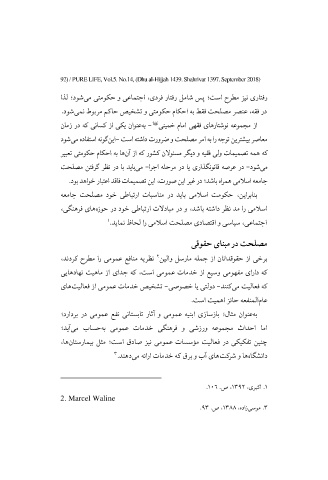 92) / PURE LIFE, Vol.5. No.14, (Dhu al-Hijjah 1439. Shahrivar 1397. September 2018)
رفتاری نیز مطرح است؛ پس شامل رفتار فردی، اجتماعی و حکومتی می‌شود؛ لذا
در فقه، عنصر مصلحت فقط به احکام حکومتی و تشخیص حاکم مربوط نمی‌شود.
از مجموعه نوشتارهای فقهی امام خمینی - به‌عنوان یکی از کسانی که در زمان
معاصر بیشترین توجه را به امر مصلحت و ضرورت داشته است -این‌گونه استفاده می‌شود
که همه تصمیمات ولی فقیه و دیگر مسئولان کشور که از آن‌ها به احکام حکومتی تعبیر
می‌شود- در عرصه قانونگذاری یا در مرحله اجرا- می‌باید با در نظر گرفتن مصلحت
جامعه اسلامی همراه باشد؛ در غیر این صورت، این تصمیمات فاقد اعتبار خواهد بود.
بنابراین، حکومت اسلامی باید در مناسبات ارتباطی خود مصلحت جامعه
اسلامی را مد نظر داشته باشد، و در مبادلات ارتباطی خود در حوزه‌های فرهنگی،
اجتماعی، سیاسی و اقتصادی مصلحت اسلامی را لحاظ نماید.۱
مصلحت در مبنای حقوقی
برخی از حقوقدانان از جمله مارسل والین۲ نظریه منافع عمومی را مطرح کردند،
که دارای مفهومی وسیع از خدمات عمومی است، که جدای از ماهیت نهادهایی
که فعالیت می‌کنند- دولتی یا خصوصی- تشخیص خدمات عمومی از فعالیت‌های
عام‌المنفعه حائز اهمیت است.
به‌عنوان مثال؛ بازسازی ابنیه عمومی و آثار تابستانی نفع عمومی در بردارد؛
اما احداث مجموعه ورزشی و فرهنگی خدمات عمومی به‌حساب می‌آید؛
چنین تفکیکی در فعالیت مؤسسات عمومی نیز صادق است؛ مثل بیمارستان‌ها،
دانشگاه‌ها و شرکت‌های آب و برق که خدمات ارائه می‌دهند.۳
۱. اکبری، ۱۳۹۲، ص. ۱۰۶.
2. Marcel Waline
۳. موسی‌زاده، ۱۳۸۸، ص. ۹۳.